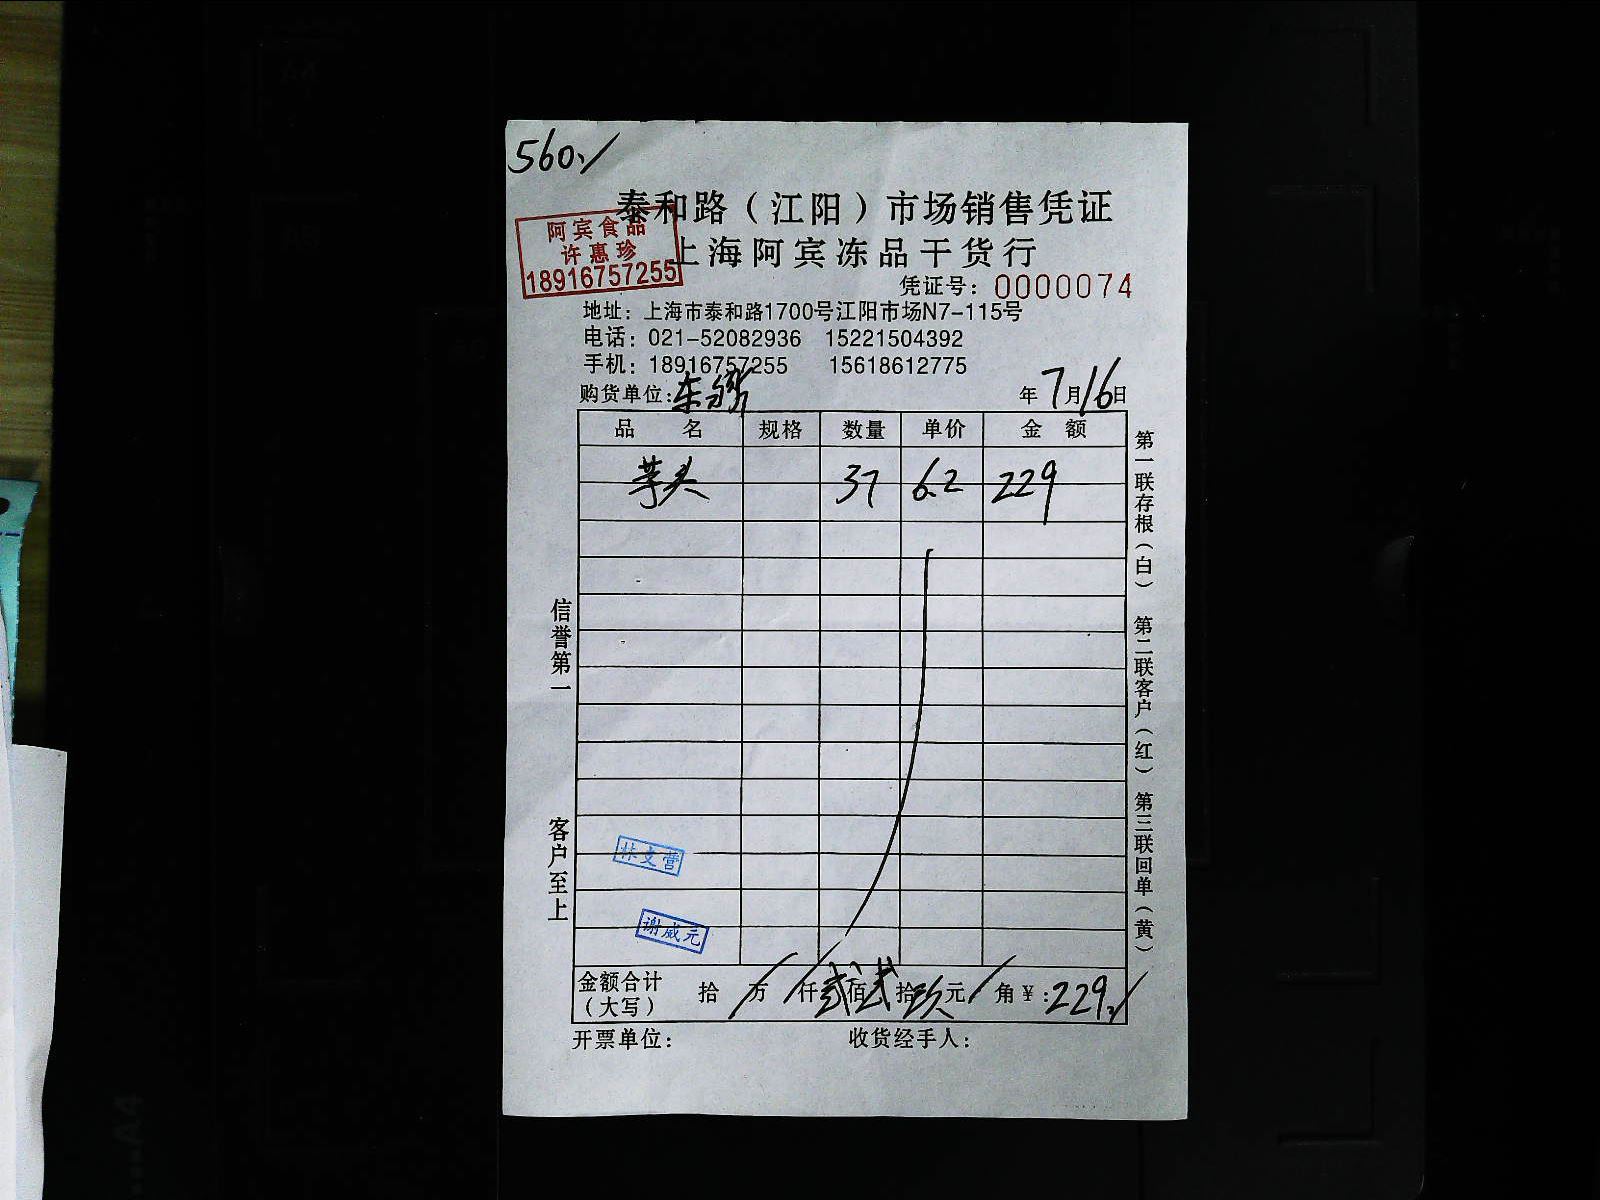 560
泰和路（江阳）市场销售凭证
阿宾食品
许惠珍
18916757255
上海阿宾冻品干货行
凭证号：0000074
地址：上海市泰和路1700号江阳市场N7-115号
电话：021-52082936 15221504392
手机：18916757255 15618612775
购货单位： 年7月16日
品名 规格 数量 单价 金额
芋头 37 6.2 229
信誉第一
客户至上
第一联存根（白） 第二联客户（红） 第三联回单（黄）
谢威元
金额合计（大写） 拾 万 仟 贰佰 贰拾 玖元 角 ￥：229
开票单位： 收货经手人：
A4